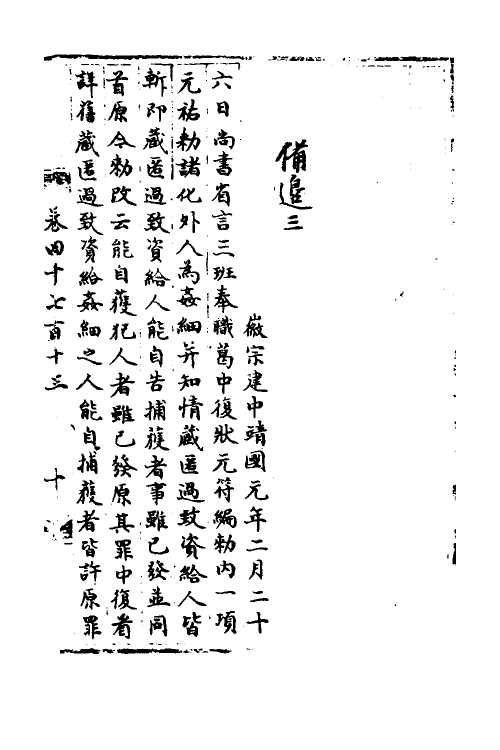 備邊三
徽宗建中靖國元年二月二十
六日尚書省言三班奉職葛中復狀元符編勑内一項
元祐勑諸化外人為姦細并知情藏匿過致資給人皆
斬即藏匿過致資給人能自告捕獲者事雖已發並同
首原今勑改云能自獲犯人者雖已發原其罪中復看
詳舊藏匿過致資給姦細之人能自捕獲者皆許原罪
卷四千七百十三 十